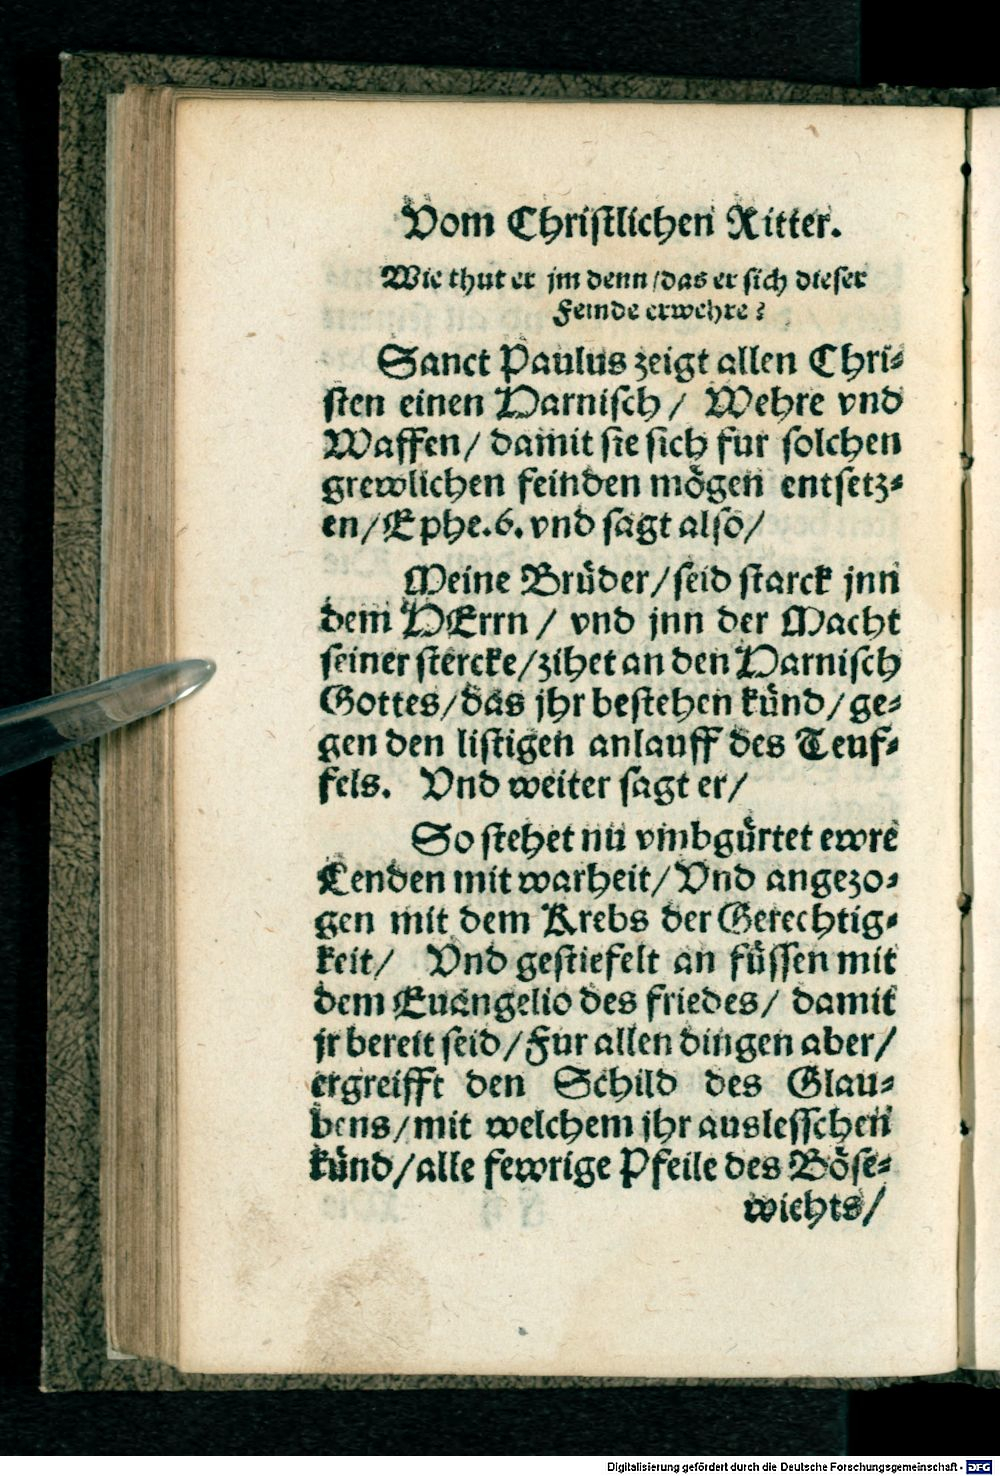 Vom Christlichen Ritter.
Wie thut er jm denn/das er sich dieser
Feinde erwehre?
Sanct Paulus zeigt allen Chri-
sten einen Harnisch/ Wehre vnd
Waffen/ damit sie sich fur solchen
grewlichen feinden mögen entsetz-
en/Ephe.6. vnd sagt also/
Meine Brüder/seid starck jnn
dem HErrn/ vnd jnn der Macht
seiner stercke/zihet an den Harnisch
Gottes/das jhr bestehen künd/ge-
gen den listigen anlauff des Teuf-
fels. Vnd weiter sagt er/
So stehet nu vmbgürtet ewre
Lenden mit warheit/Vnd angezo-
gen mit dem Krebs der Gerechtig-
keit/ Vnd gestiefelt an füssen mit
dem Euangelio des friedes/ damit
jr bereit seid/Fur allen dingen aber/
ergreifft den Schild des Glau-
bens/mit welchem jhr auslesschen
künd/alle fewrige Pfeile des Böse-
wichts/
Digitalisierung gefördert durch die Deutsche Forschungsgemeinschaft - DFG